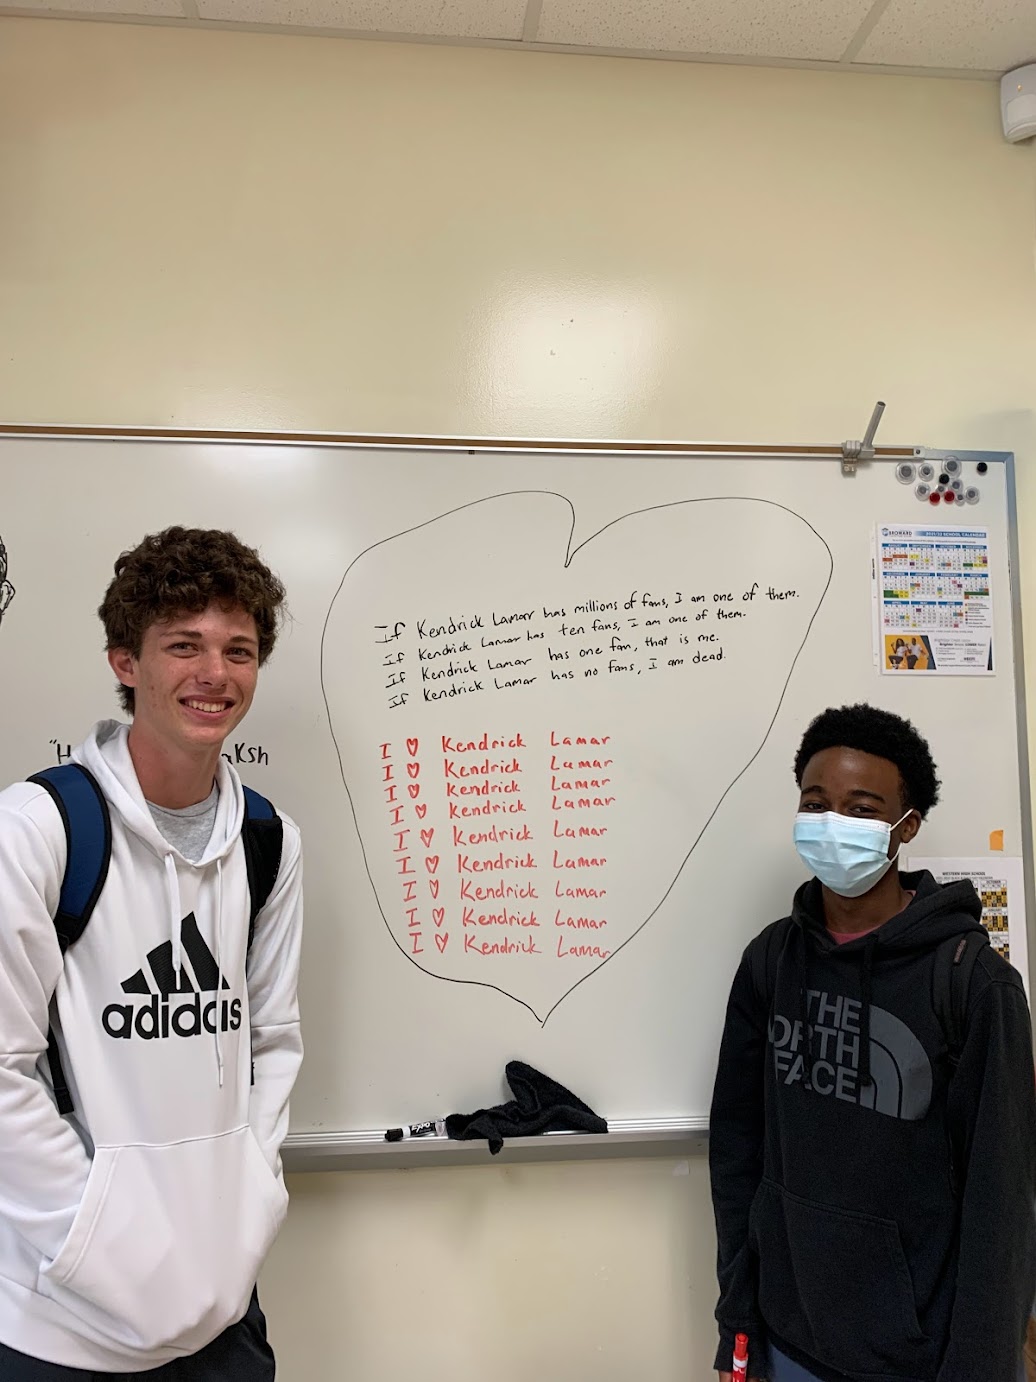 If Kendrick Lamar has millions of fans, I am one of them.
If Kendrick Lamar has ten fans, I am one of them.
If Kendrick Lamar has one fan, that is me.
If Kendrick Lamar has no fans, I am dead.
I ♡ Kendrick Lamar
I ♡ Kendrick Lamar
I ♡ Kendrick Lamar
I ♡ Kendrick Lamar
I ♡ Kendrick Lamar
I ♡ Kendrick Lamar
I ♡ Kendrick Lamar
I ♡ Kendrick Lamar
I ♡ Kendrick Lamar
adidas
THE
NORTH
FACE
EXPO
BROWARD
2021/22 SCHOOL CALENDAR
WESTERN HIGH SCHOOL